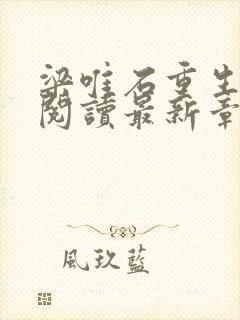 梁唯石重生
閱讀最新章
風玖藍